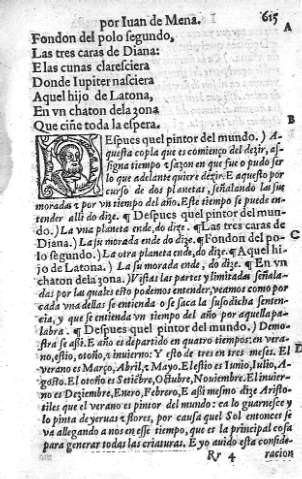 por Iuan de Mena. 615
A
Fondon del polo segundo,
Las tres caras de Diana:
E las cunas claresciera
Donde Iupiter nasciera
Aquel hijo de Latona,
En vn chaton dela zona
Que ciñe toda la espera.
B
DEspues quel pintor del mundo.) A
questa copla que es comienço del dezir, as-
signa tiempo τ sazon en que fue o pudo ser
lo que adelante quiere dezir. E aquesto por
curso de dos planetas, señalando las sus
moradas τ por vn tiempo del año. Este tiempo se puede en-
tender alli do dize. ¶ Despues quel pintor del mun-
do.) La vna planeta ende, do dize. ¶ Las tres caras de
Diana.) La su morada ende do dize. ¶ Fondon del po-
C
lo segundo.) La otra planeta ende, do dize. ¶ Aquel hi-
jo de Latona.) La su morada ende, do dize. ¶ En vn
chaton dela zona.) Vistas las partes y limitadas señala-
das por las quales esto podemos entender, veamos como por
cada vna dellas se entienda o se saca la susodicha senten-
cia, y que se entienda vn tiempo del año por aquella pa-
labra. ¶ Despues quel pintor del mundo.) Demo-
stra se assi. E año es departido en quatro tiempos: en vera-
no, estio, otoño, τ inuierno: Y esto de tres en tres meses. El
D
verano es Março, Abril, τ Mayo. El estio es Iunio, Iulio, A-
gosto. El otoño es Setiẽbre, Octubre, Nouiembre. El inuier-
no es Deziembre, Enero, Febrero. E assi mesmo dize Aristo-
tiles que el verano es pintor del mundo: ca lo guarnesce y
lo pinta de yeruas τ flores, por causa quel Sol entonces se
va allegando a nos en esse tiempo, que es la principal cosa
para generar todas las criaturas. E yo auido esta conside-
Rr 4 racion